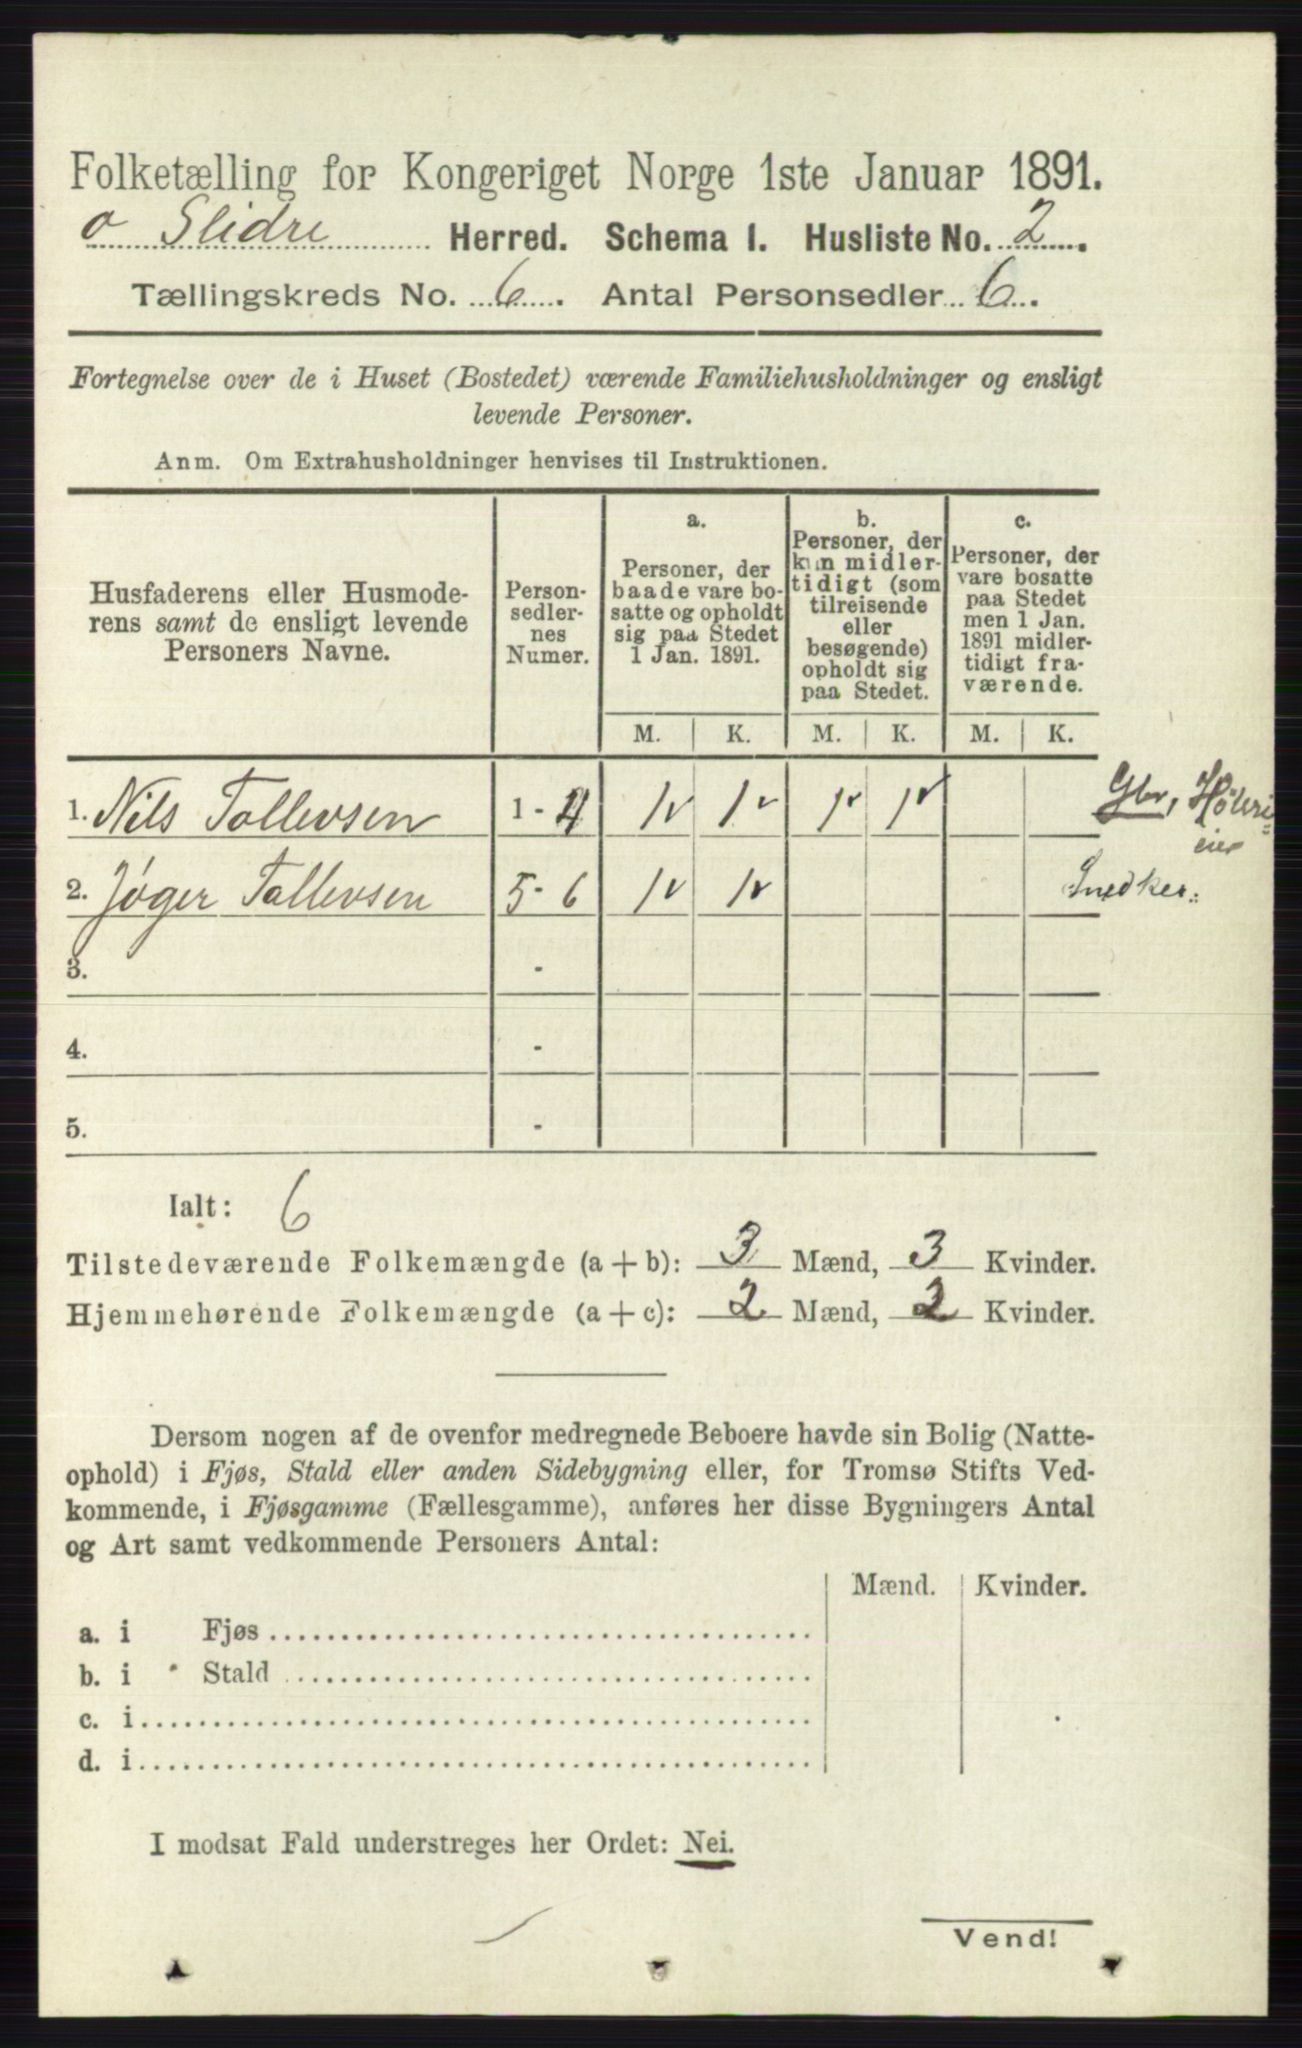 Folketælling for Kongeriget Norge 1ste Januar 1891.
o Slidre Herred. Schema I. Husliste No. 2.
Tællingskreds No. 6. Antal Personsedler 6.
Fortegnelse over de i Huset (Bostedet) værende Familiehusholdninger og ensligt
levende Personer.
Anm. Om Extrahusholdninger henvises til Instruktionen.
Husfaderens eller Husmode-
rens samt de ensligt levende
Personers Navne.
Person-
sedler-
nes
Numer.
a.
Personer, der
baade vare bo-
satte og opholdt
sig paa Stedet
1 Jan. 1891.
b.
Personer, der
kun midler-
tidigt (som
tilreisende
eller
besøgende)
opholdt sig
paa Stedet.
c.
Personer, der
vare bosatte
paa Stedet
men 1 Jan.
1891 midler-
tidigt fra-
værende.
M. K. M. K. M. K.
1. Nils Tollevsen 1 - 4 1 1 1 1 Gbr,
2. Jøger Tollevsen 5 - 6 1 1 Snedker.
3. -
4. -
5. -
Ialt: 6
Tilstedeværende Folkemængde (a + b): 3 Mænd, 3 Kvinder.
Hjemmehørende Folkemængde (a + c): 2 Mænd, 2 Kvinder.
Dersom nogen af de ovenfor medregnede Beboere havde sin Bolig (Natte-
ophold) i Fjøs, Stald eller anden Sidebygning eller, for Tromsø Stifts Ved-
kommende, i Fjøsgamme (Fællesgamme), anføres her disse Bygningers Antal
og Art samt vedkommende Personers Antal:
Mænd. Kvinder.
a. i Fjøs
b. i Stald
c. i
d. i
I modsat Fald understreges her Ordet: Nei.
Vend!